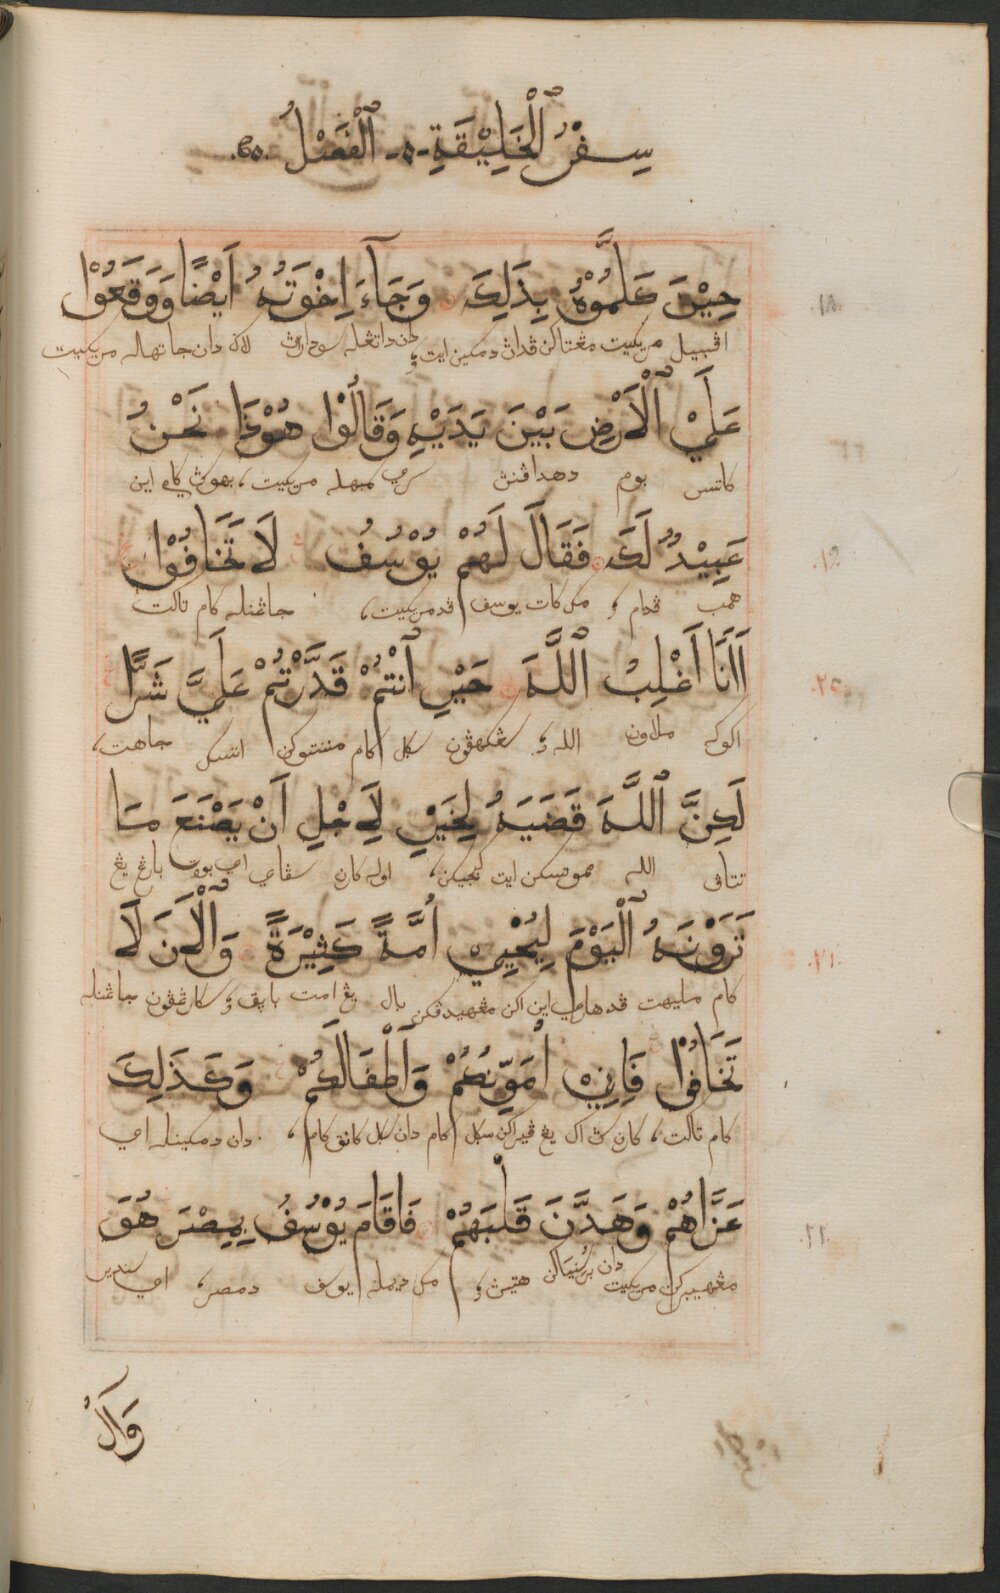 سِفْرُ ٱلْخَلِيْقَةِ -٥- ٱلْفَصْلُ .٥٠.
حِيْنَ كَلَّمُوْهُ بِذَلِكَ وَجَآءَ اِخْوَتُهُ اَيْضًا وَوَقَعُوْا
.١٨.
اڤبيل مريكيت مڠتاكن ڤداڽ دمكين ايت؛ دان داتڠله سودارڽ لاݢ دان جاتهاله مريكيت
عَلَيْ ٱلْاَرْضِ بَيْنَ يَدَيْهِ وَقَالُوْا هُوْذَا نَحْنُ
كاتس بوم دهداڤنڽ سمبهله مريكيت، بهوڽ كامي اين
عَبِيْدٌ لَكَ فَقَالَ لَهُمْ يُوْسُفُ لَا تَخَافُوْا
.١٩.
همب ڤدام؛ مك كات يوسف ڤد مريكيت، جاڠنله كام تاكت
اَاَنَا اَغْلِبُ ٱللَّهَ حَيْرِ اَنْتُمْ قَدَّرْتُمْ عَلَيَّ شَرًّا
.٢٠.
اكوكه ملاون الله؛ سڠكهڤون سكل كام منتوكن اتسكو جاهت،
لَكِنَّ ٱللَّهَ قَضَيَهُ لِخَيْرٍ لِاَجْلِ اَنْ يَصْنَعَ مَا
تتاڤ الله مموتسكن ايت كبجيكن، اوله كارن سڤاي اي بوت بارڠ يڠ
تَرَوْنَهُ ٱلْيَوْمَ لِيُحْيِيَ اُمَّةً كَثِيْرَةً وَٱلْاَنَ لَا
.٢١.
كام مليهت ڤد هاري اين اكن مڠهيدڤكن بال يڠ امت باڽق؛ سكارڠڤون جاڠنله
تَخَافُوْا فَاِنِّيْ اُمَوِّنُكُمْ وَاَطْفَالَكُمْ وَكَذَلِكَ
كام تاكت، كارن اك يڠ ڤيراكن سكل كام دان سكل كانق كام، دان دمكينله اي
عَزَّاهُمْ وَهَدَّنَ قَلْبَهُمْ فَاَقَامَ يُوْسُفُ بِمِصْرَ هُوَ
.٢٢.
مڠهيبركن مريكيت دان هتيڽ؛ مك ديمله يوسف دمصر، اي سنديري
وَآلُ